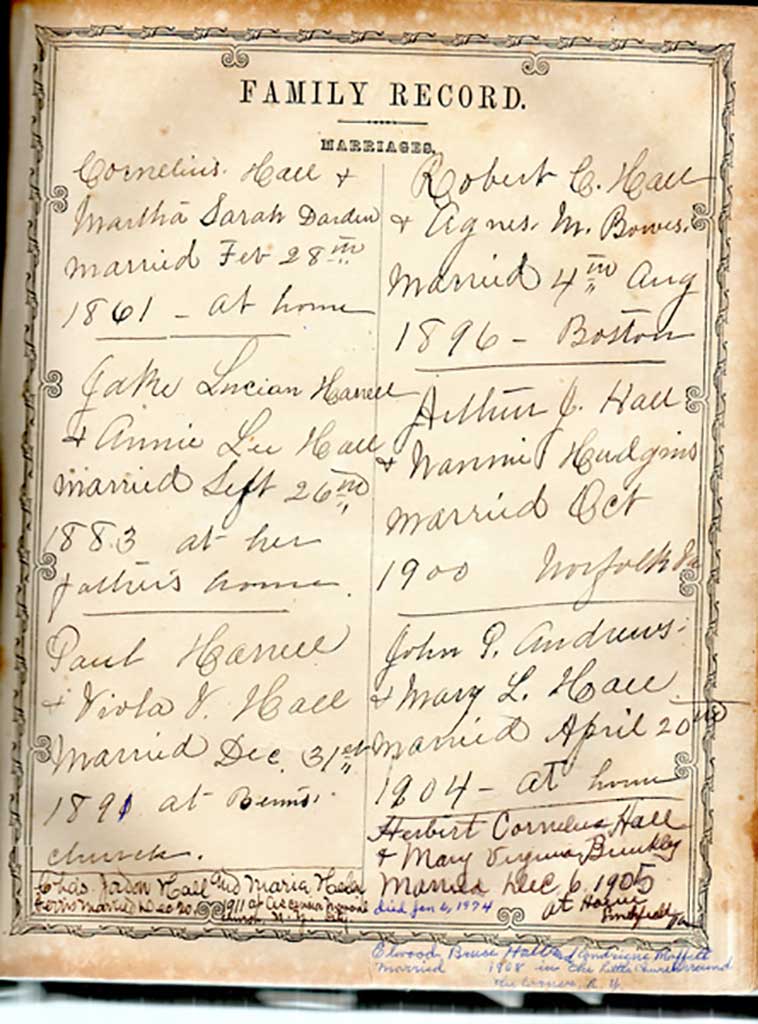 FAMILY RECORD.
MARRIAGES.
Cornelius Hall &
Martha Sarah Darden
married Feb 28th
1861 - at home
Jake Lucian Harrell
& Annie Lee Hall
married Sept 26th
1883 at her
father's home.
Paul Harrell
& Viola V. Hall
Married Dec. 31st
1891 at Benns
church.
Chas. Jadon Hall and Maria Helen
Ferris married Dec 20. 1911 at
church N. Y. City
Robert C. Hall
& Agnes M. Bowes.
Married 4th Aug
1896 - Boston
Arthur J. Hall
& Nannie Hudgins
married Oct
1900 Norfolk Va
John P. Andrews
& Mary L. Hall
married April 20th
1904 - at home
Herbert Cornelius Hall
& Mary Virginia Brinkley
Married Dec 6, 1905
died Jan 6, 1974 at Home
Smithfield Va
Elwood Bruce Hall & Moffett
Married 1968 in the Little Church around
the corner N. Y.